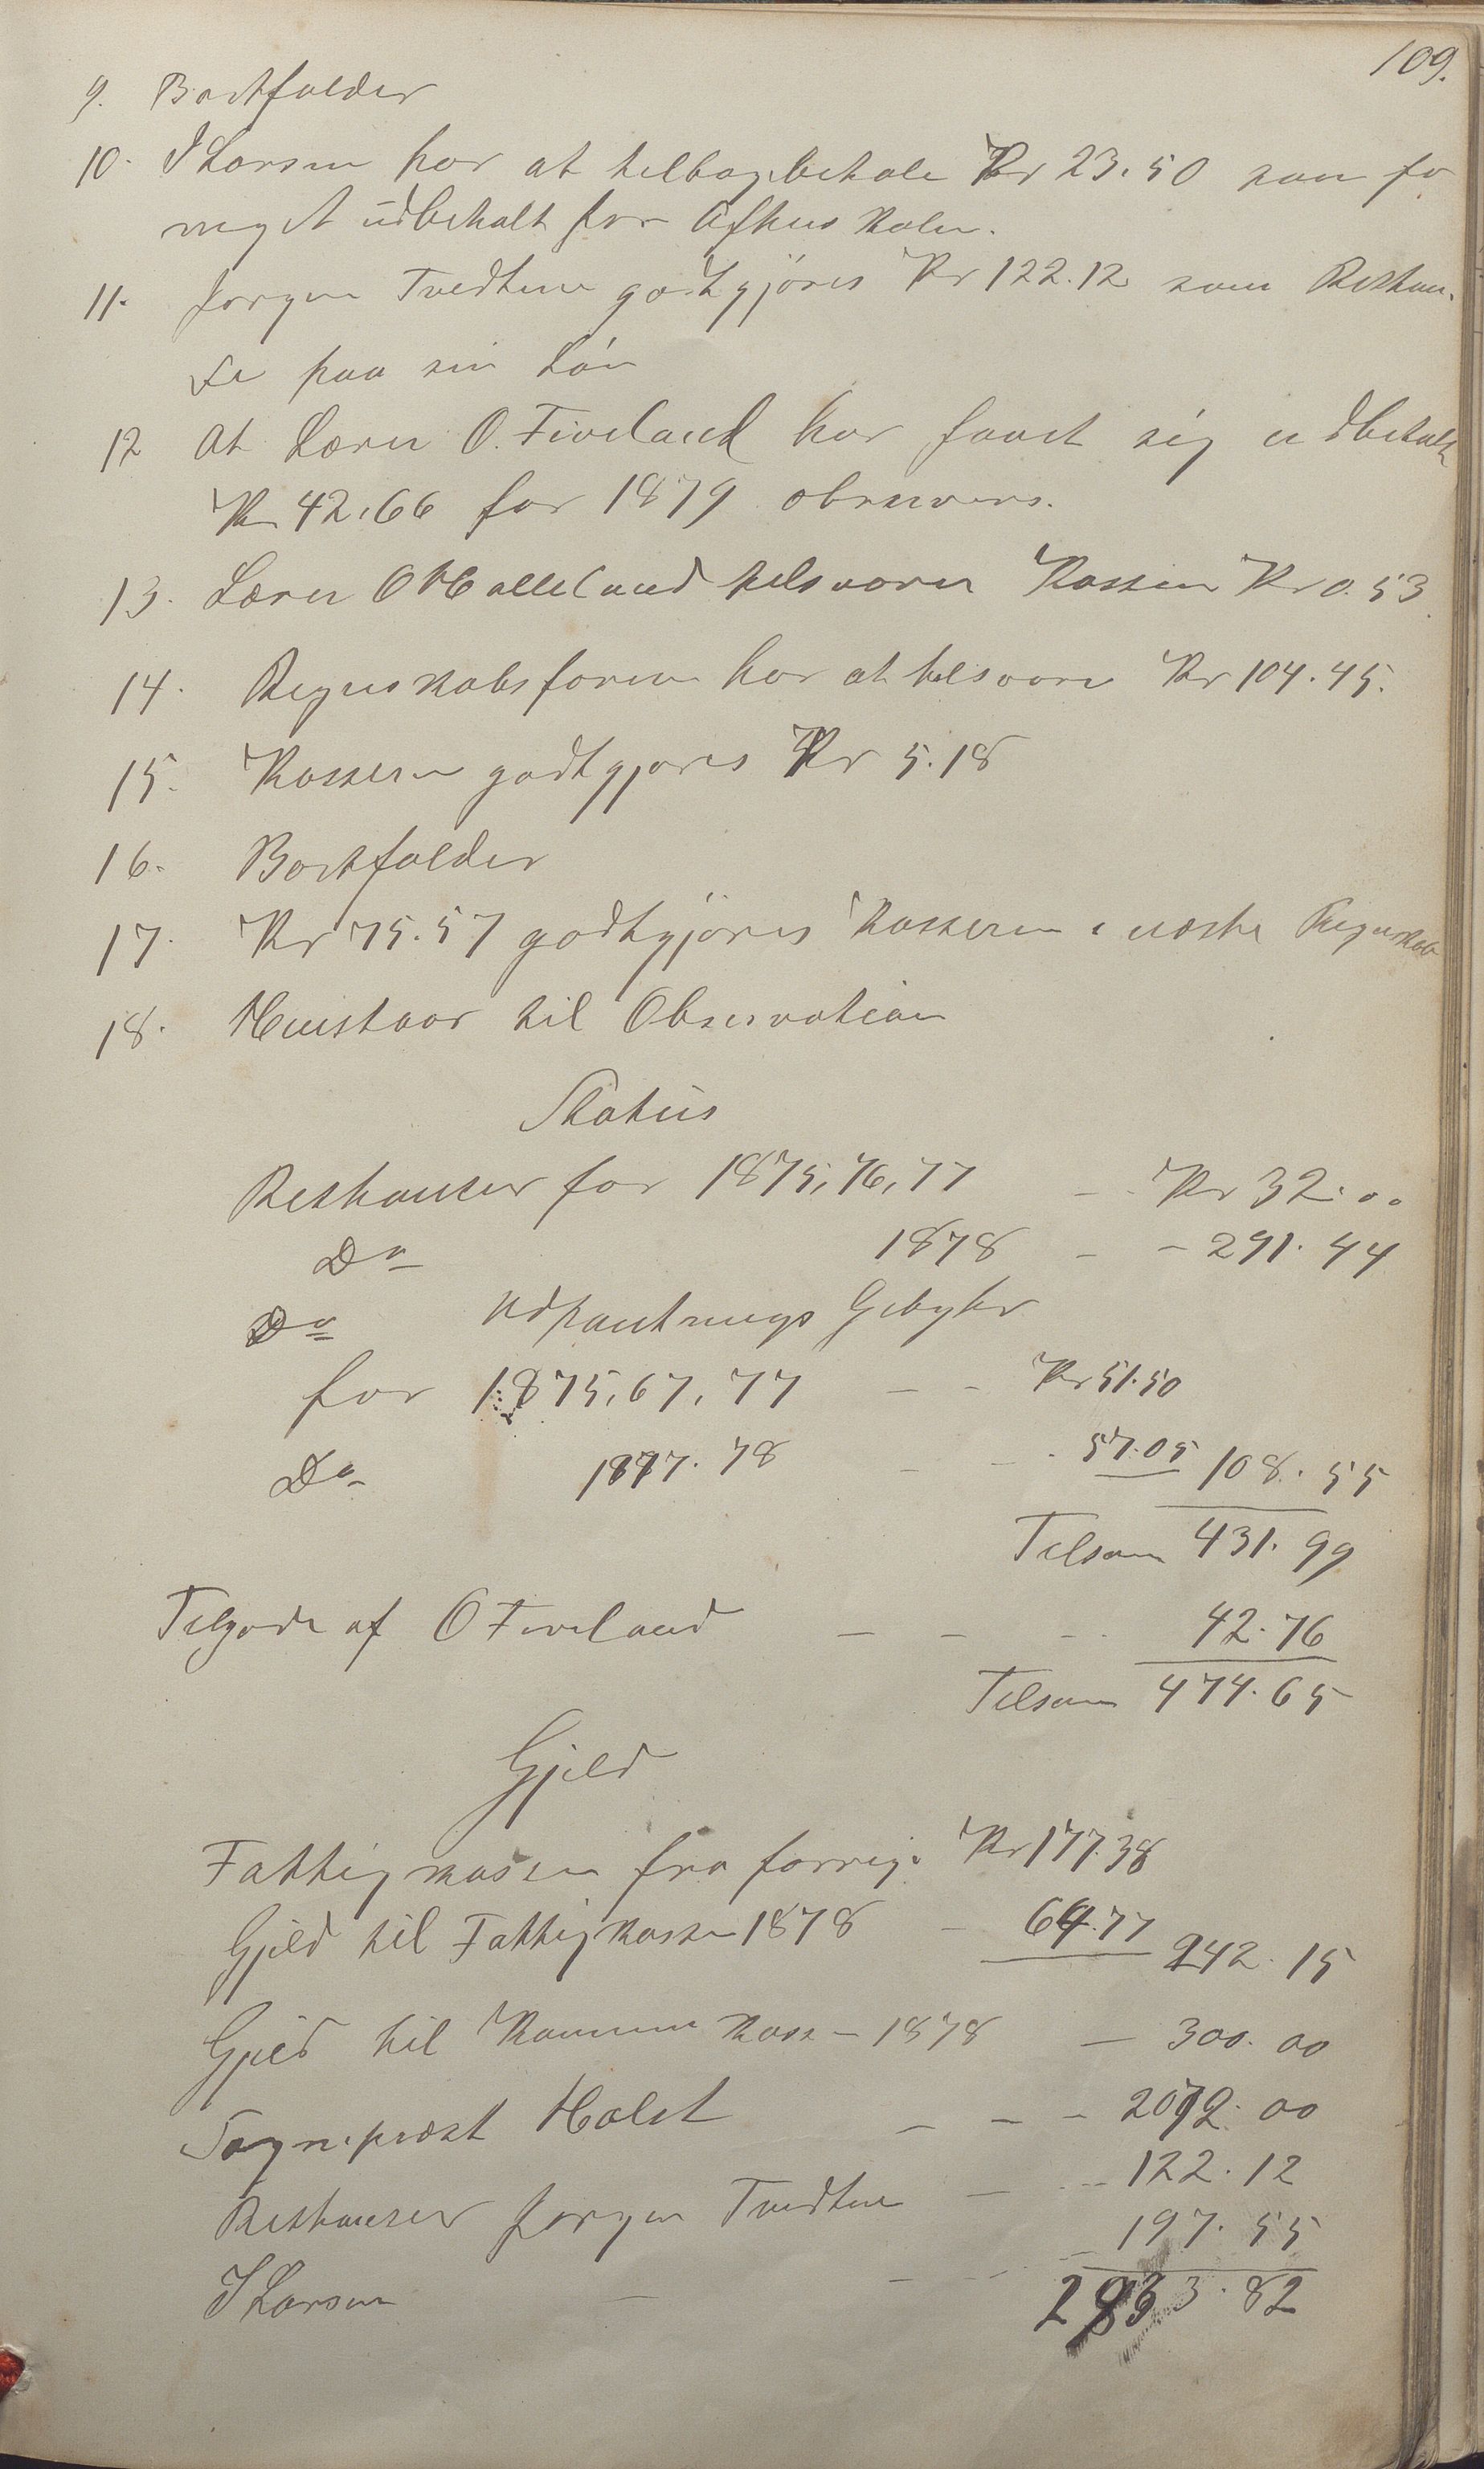 109.
9. Bortfalder
10. I Larsen har at tilbagebetale Kr 23.50 som for
meget üdbetalt for Afhus Kolen.
11. Jørgen Tvedtene godtgjöres Kr 122.12 som Restan-
se paa sin Løn
12 At Lærer O. Fiveland har faaet sig udbetalt
Kr 42,66 for 1879 observeres.
13. Lærer O Halleland tilsvarer Kassen Kr 0.53.
14. Regnskabsføreren har at tilsvare Kr 104.45.
15. Kassern godtgjøres Kr 5.18
16. Bortfalder
17. Kr 75.57 godtgjöres Kasseren i næste Regnskab
18. Henstaar til Observation
Status
Restanser for 1875, 76, 77 - - Kr 32.00
Do 1878 - - 291.44
Do Udpantnings Gebyhr
for 1875, 67, 77 - - Kr 51.50
Do 1877.78 - - 57.05 108.55
Tilsam 431.99
Tilgode af O Fiveland - - - 42.76
Tilsam 474.65
Gjeld
Fattigkassen fra forrige Kr 177.38
Gjeld til Fattigkassen 1878 - 64.77 242.15
Gjeld til Kommunekass - 1878 - 300.00
Sogneprest Holst - - - 2072.00
Restanser Jørgen Tvedtene - - 122.12
I Larsen - - - 197.55
2933.82